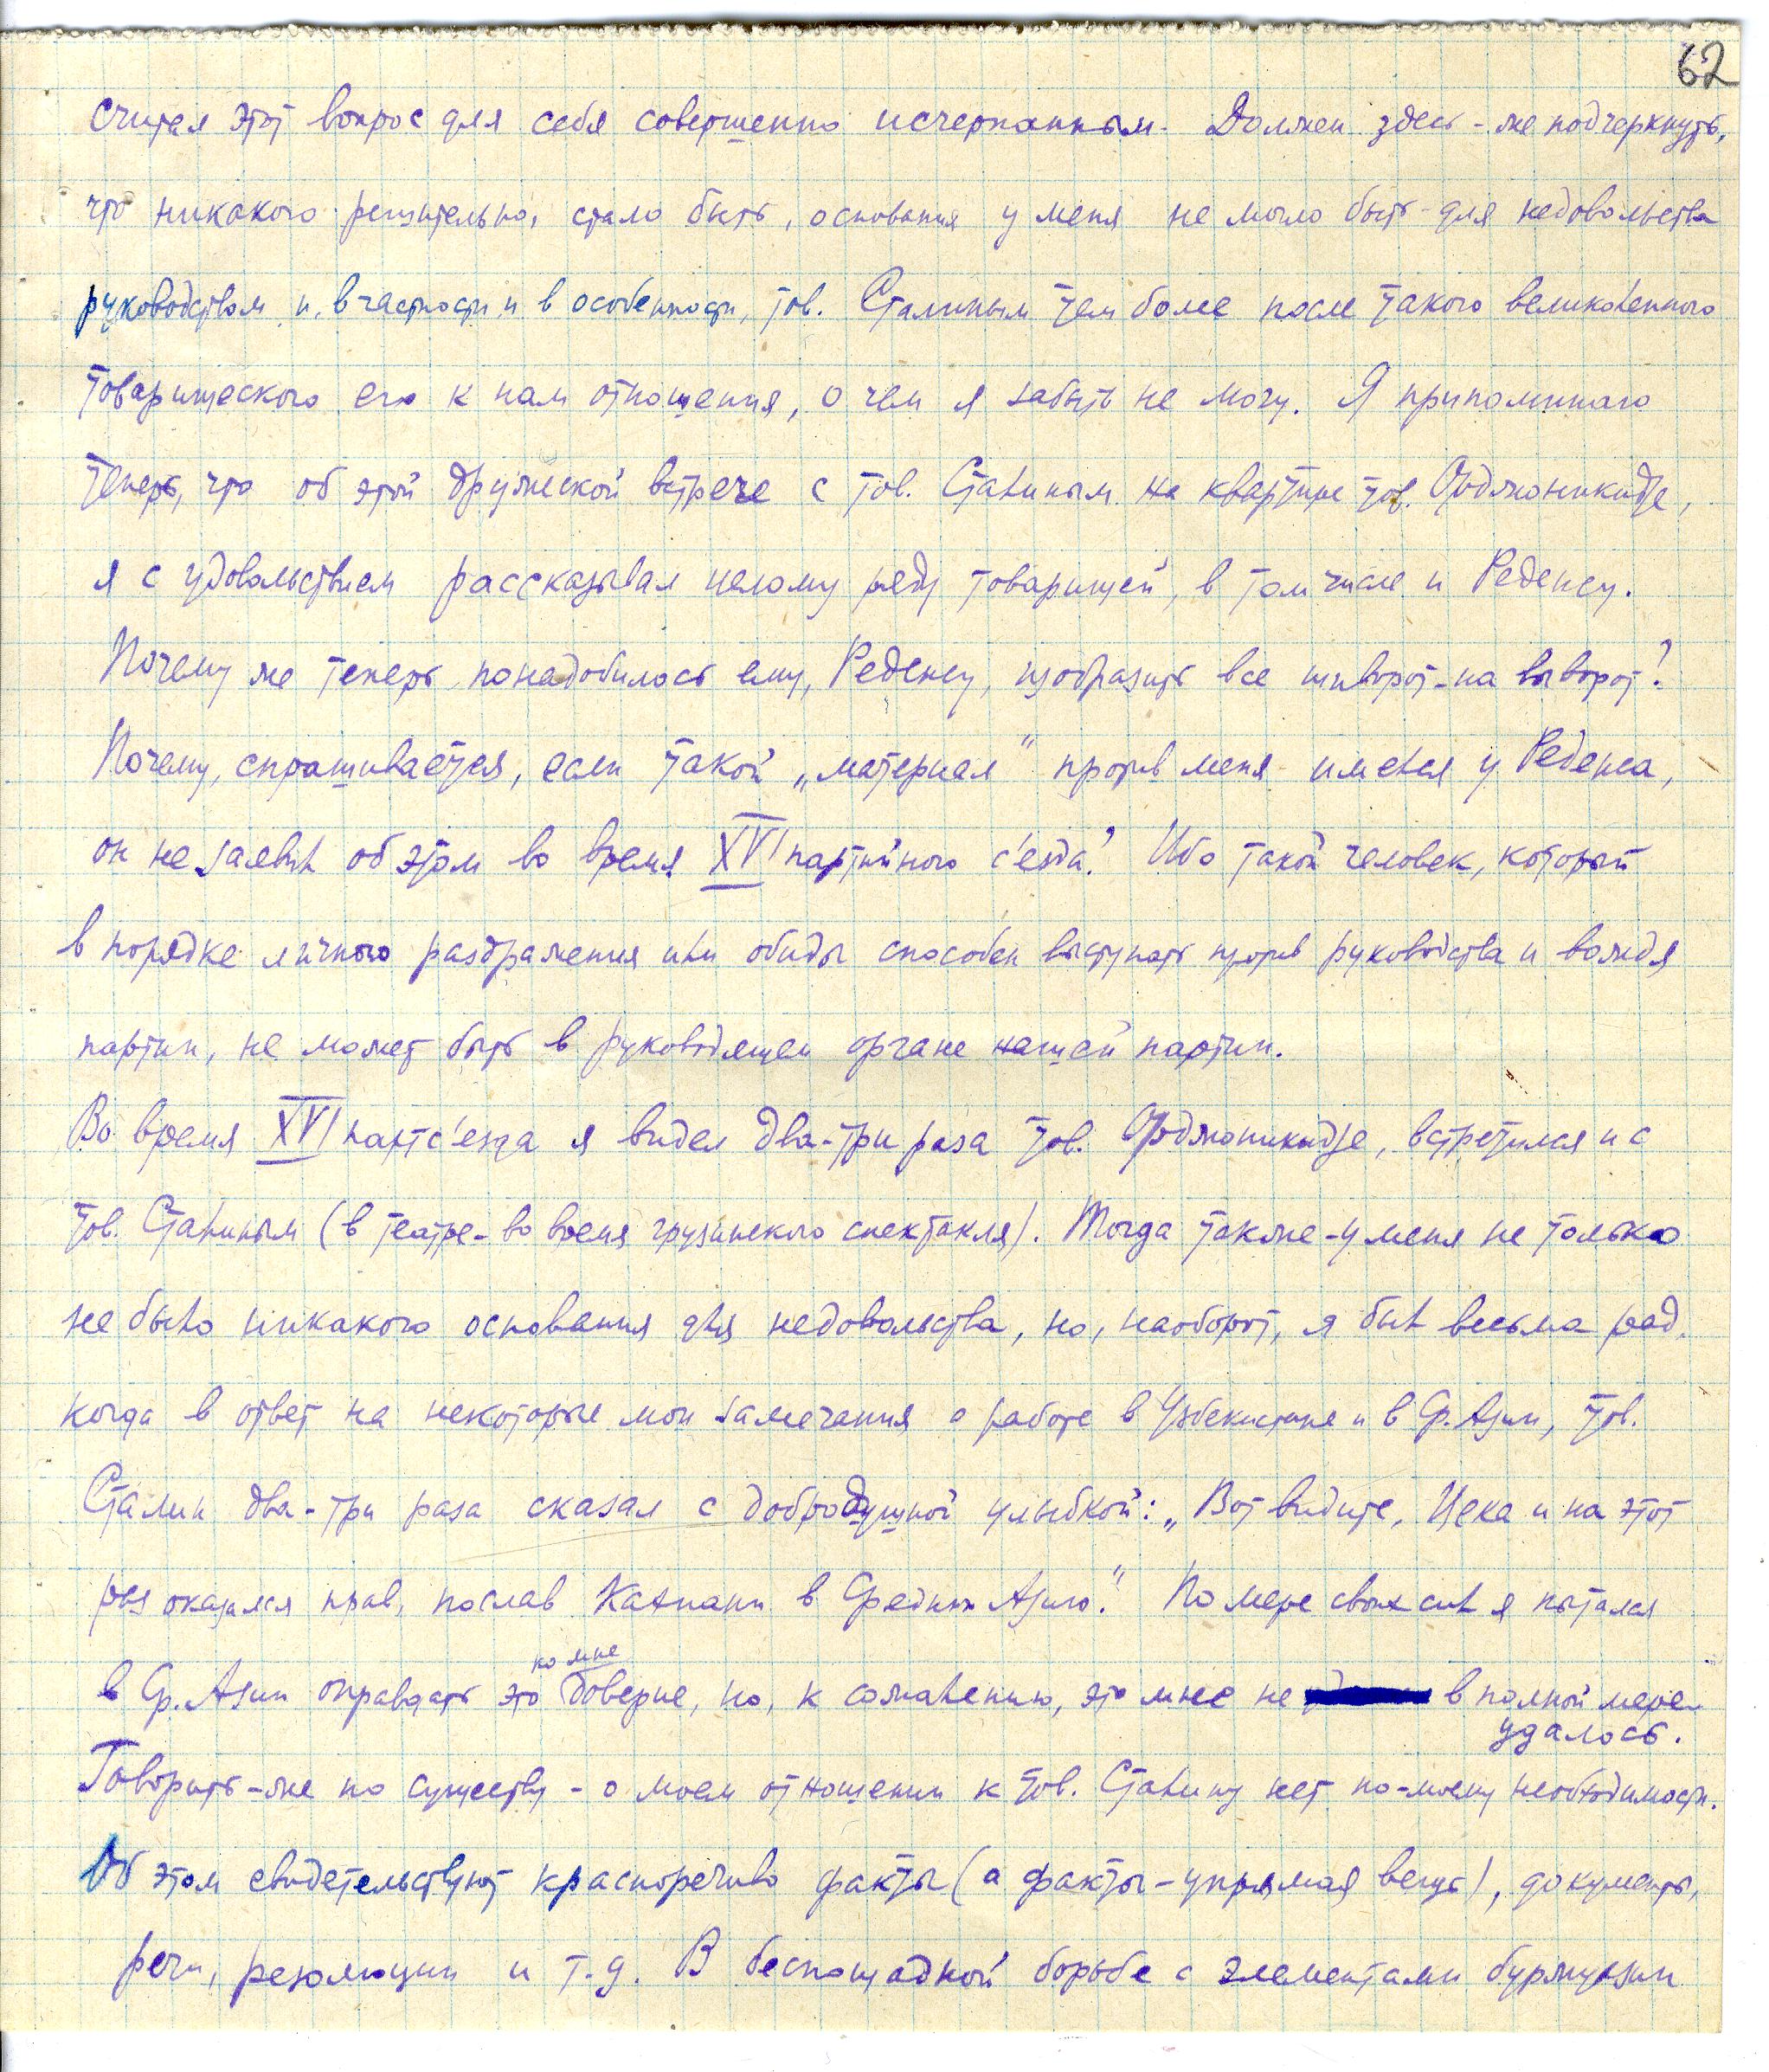 62
считая этот вопрос для себя совершенно исчерпанным. Должен здесь-же подчеркнуть,
что никакого решительно, стало быть, основания у меня не могло быть для недовольства
руководством и, в частности и в особенности, тов. Сталиным тем более после такого великолепного
товарищеского его к нам отношения, о чем я забыть не могу. Я припоминаю
теперь, что об этой дружеской встрече с тов. Сталиным на квартире тов. Орджоникидзе,
я с удовольствием рассказывал целому ряду товарищей, в том числе и Реденсу.
Почему же теперь понадобилось ему, Реденсу, изобразить все шиворот-на выворот?
Почему, спрашивается, если такой „материал" против меня имелся у Реденса,
он не заявил об этом во время XVI партийного с'езда? Ибо такой человек, который
в порядке личного раздражения или обиды способен выступать против руководства и вождя
партии, не может быть в руководящем органе нашей партии.
Во время XVI партс'езда я видел два-три раза тов. Орджоникидзе, встретился и с
тов. Сталиным (в театре-во время грузинского спектакля). Тогда также-у меня не только
не было никакого основания для недовольства, но, наоборот, я был весьма рад,
когда в ответ на некоторые мои замечания о работе в Узбекистане и в Ср. Азии, тов.
Сталин два-три раза сказал с добродушной улыбкой: „Вот видите, Цека и на этот
раз оказался прав, послав Кахиани в Среднюю Азию." По мере своих сил я пытался
ко мне
в Ср. Азии оправдать это доверие, но, к сожалению, это мне не в полной мере
удалось.
Говорить-же по существу - о моем отношении к тов. Сталину нет по-моему необходимости.
Об этом свидетельствуют красноречиво факты (а факты-упрямая вещь), документы,
речи, резолюции и т.д. В беспощадной борьбе с элементами буржуазии